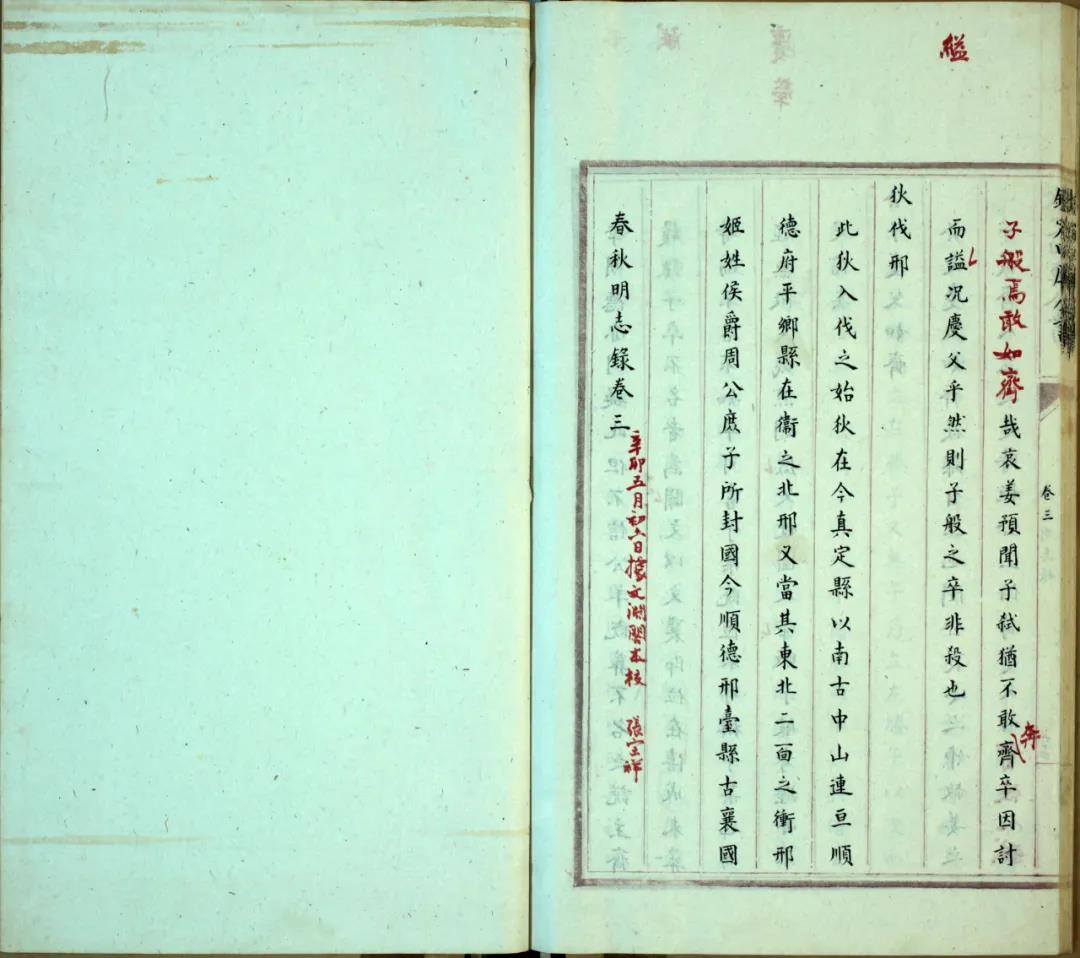 縊
卷三
子般焉敢如齊哉哀姜預聞子弑猶不敢奔齊卒因討
而謚况慶父乎然則子般之卒非殺也
狄伐邢
此狄入伐之始狄在今真定縣以南古中山連亘順
德府平鄉縣在衞之北邢又當其東北二面之衝邢
姬姓侯爵周公庶子所封國今順德邢臺縣古襄國
春秋明志錄卷三
辛卯五月初六日據文淵閣本校 張宗祥